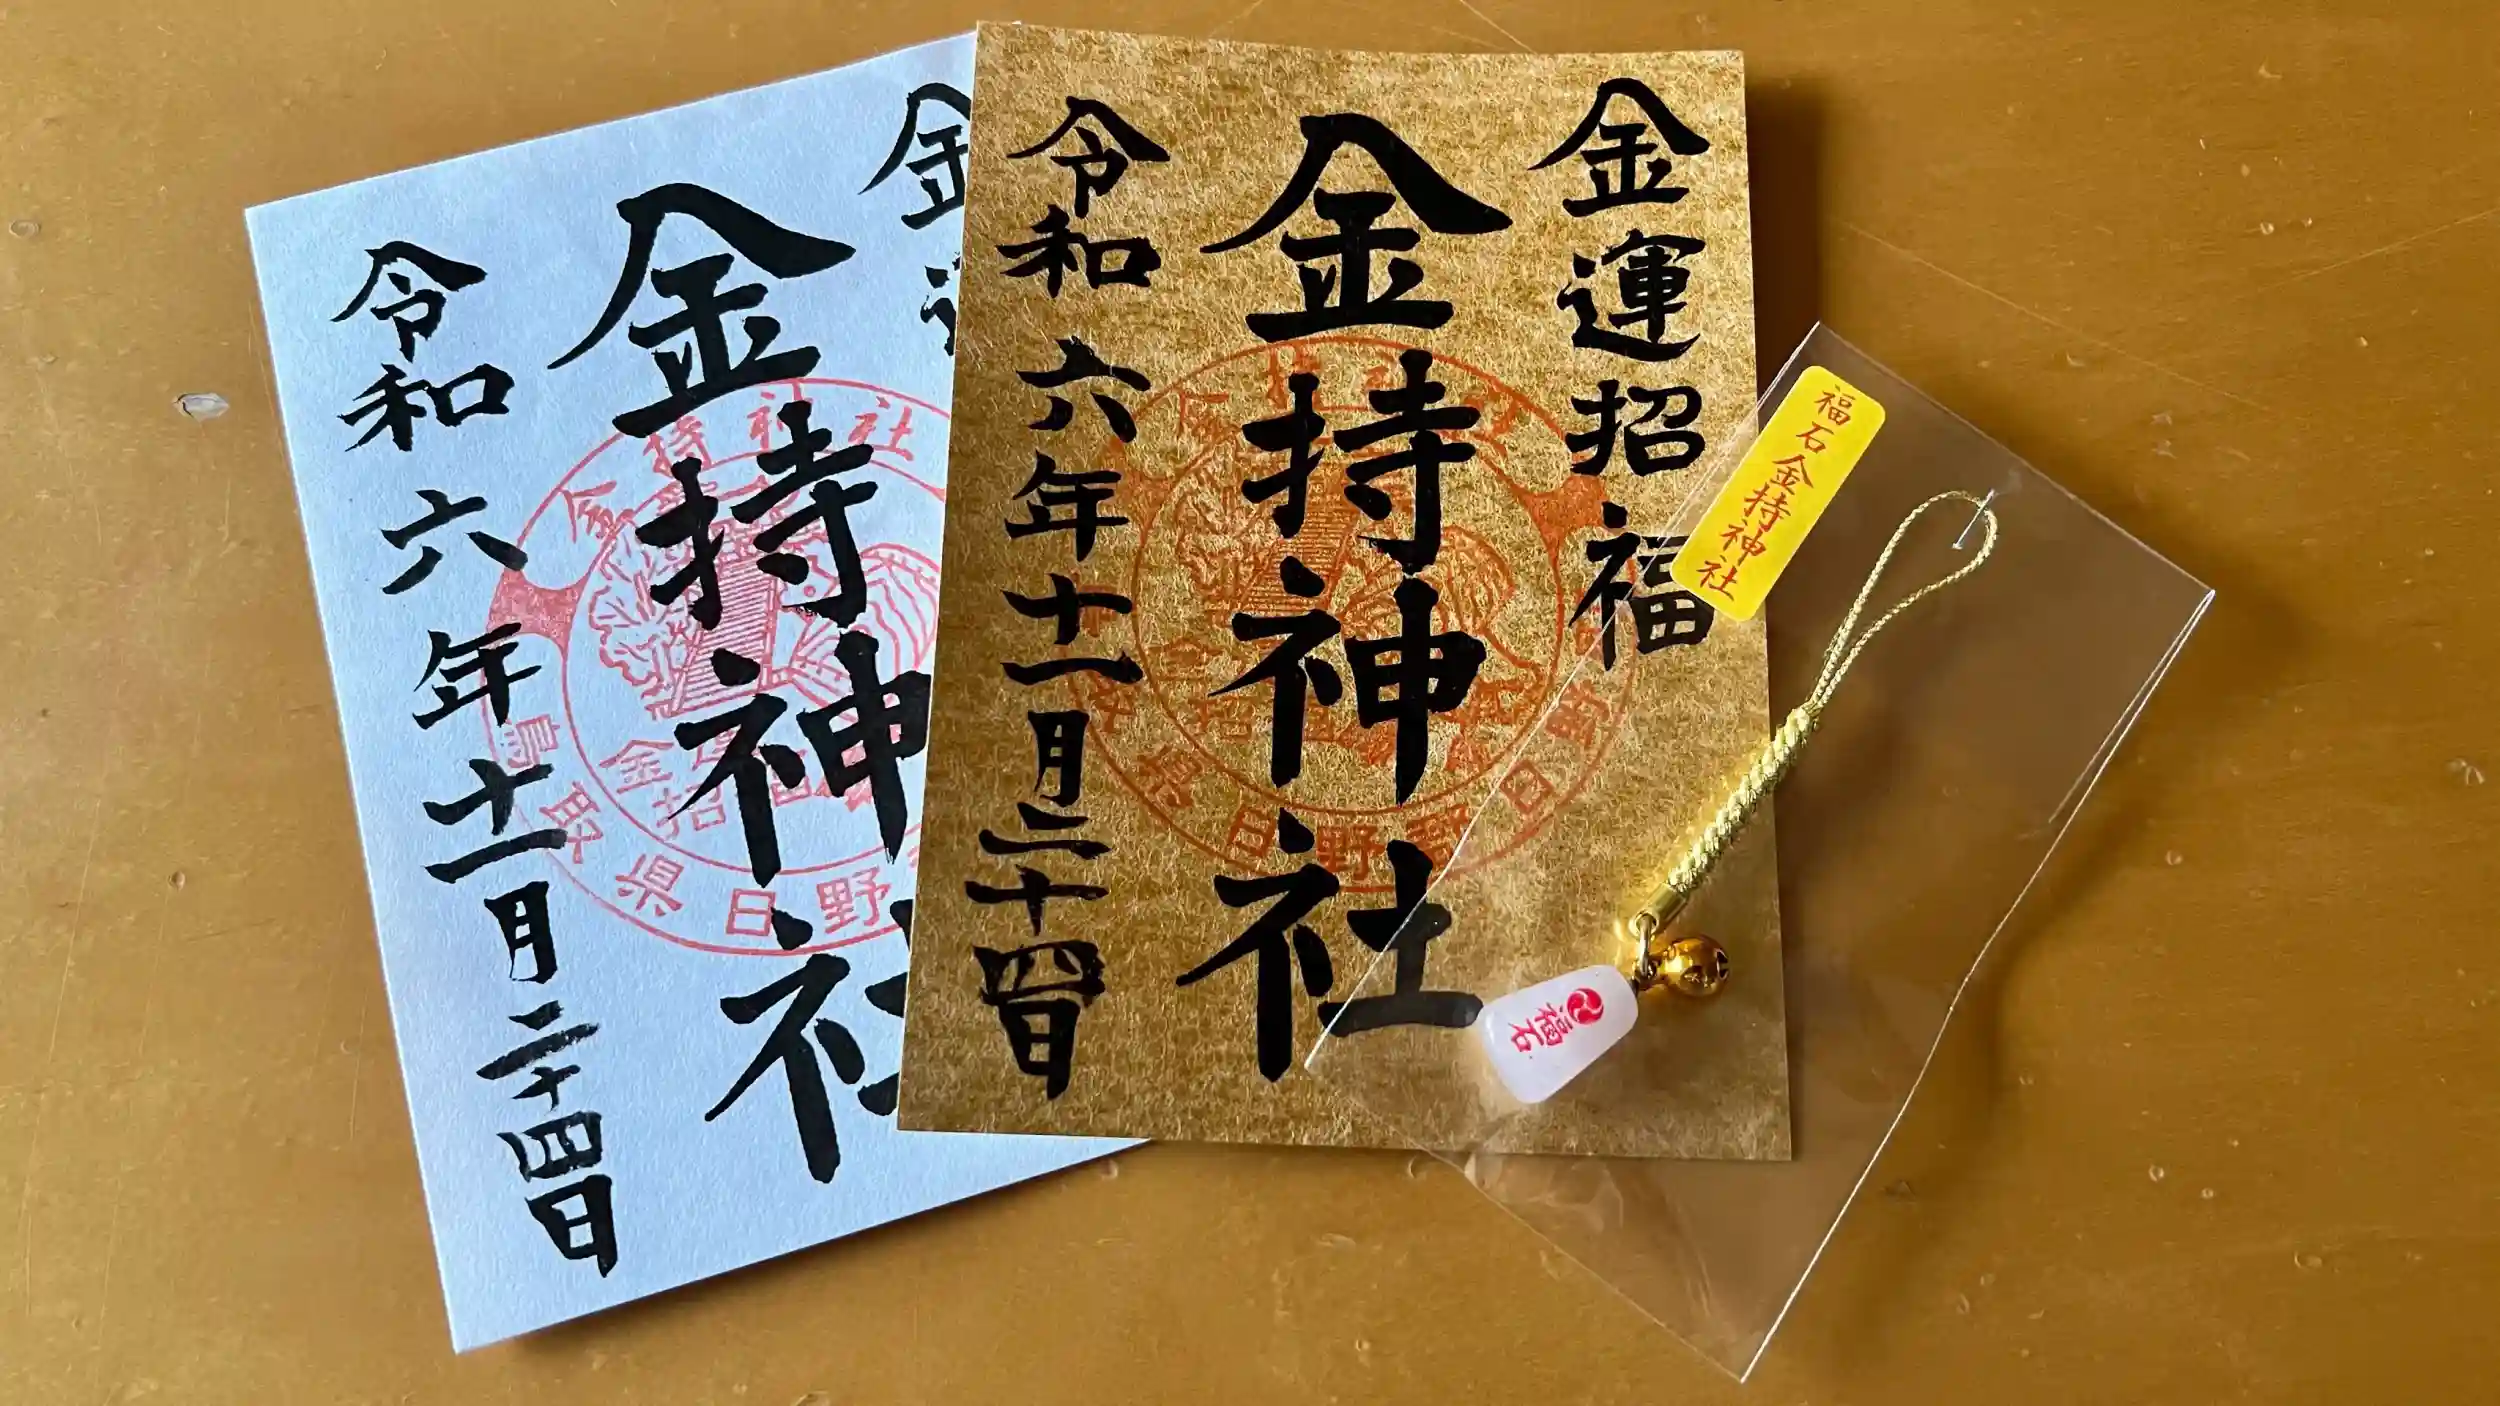 金運招福
金持神社
令和六年十一月二十四日
金持神社
令和六年十一月二十四日
金持神社
鳥取県日野
金運
招
福石金持神社
福石